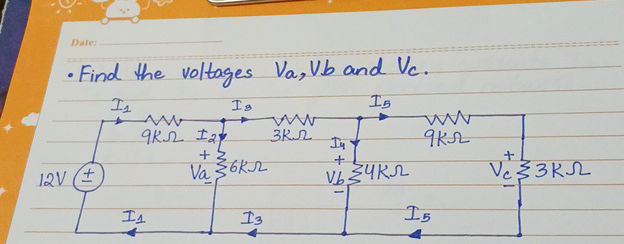 Date:
• Find the voltages Va, Vb and Vc.
I1 I3 I5
9KΩ I2 3KΩ I4 9KΩ
12V ± + Va - 6KΩ + Vb - 4KΩ + Vc - 3KΩ
I1 I3 I5